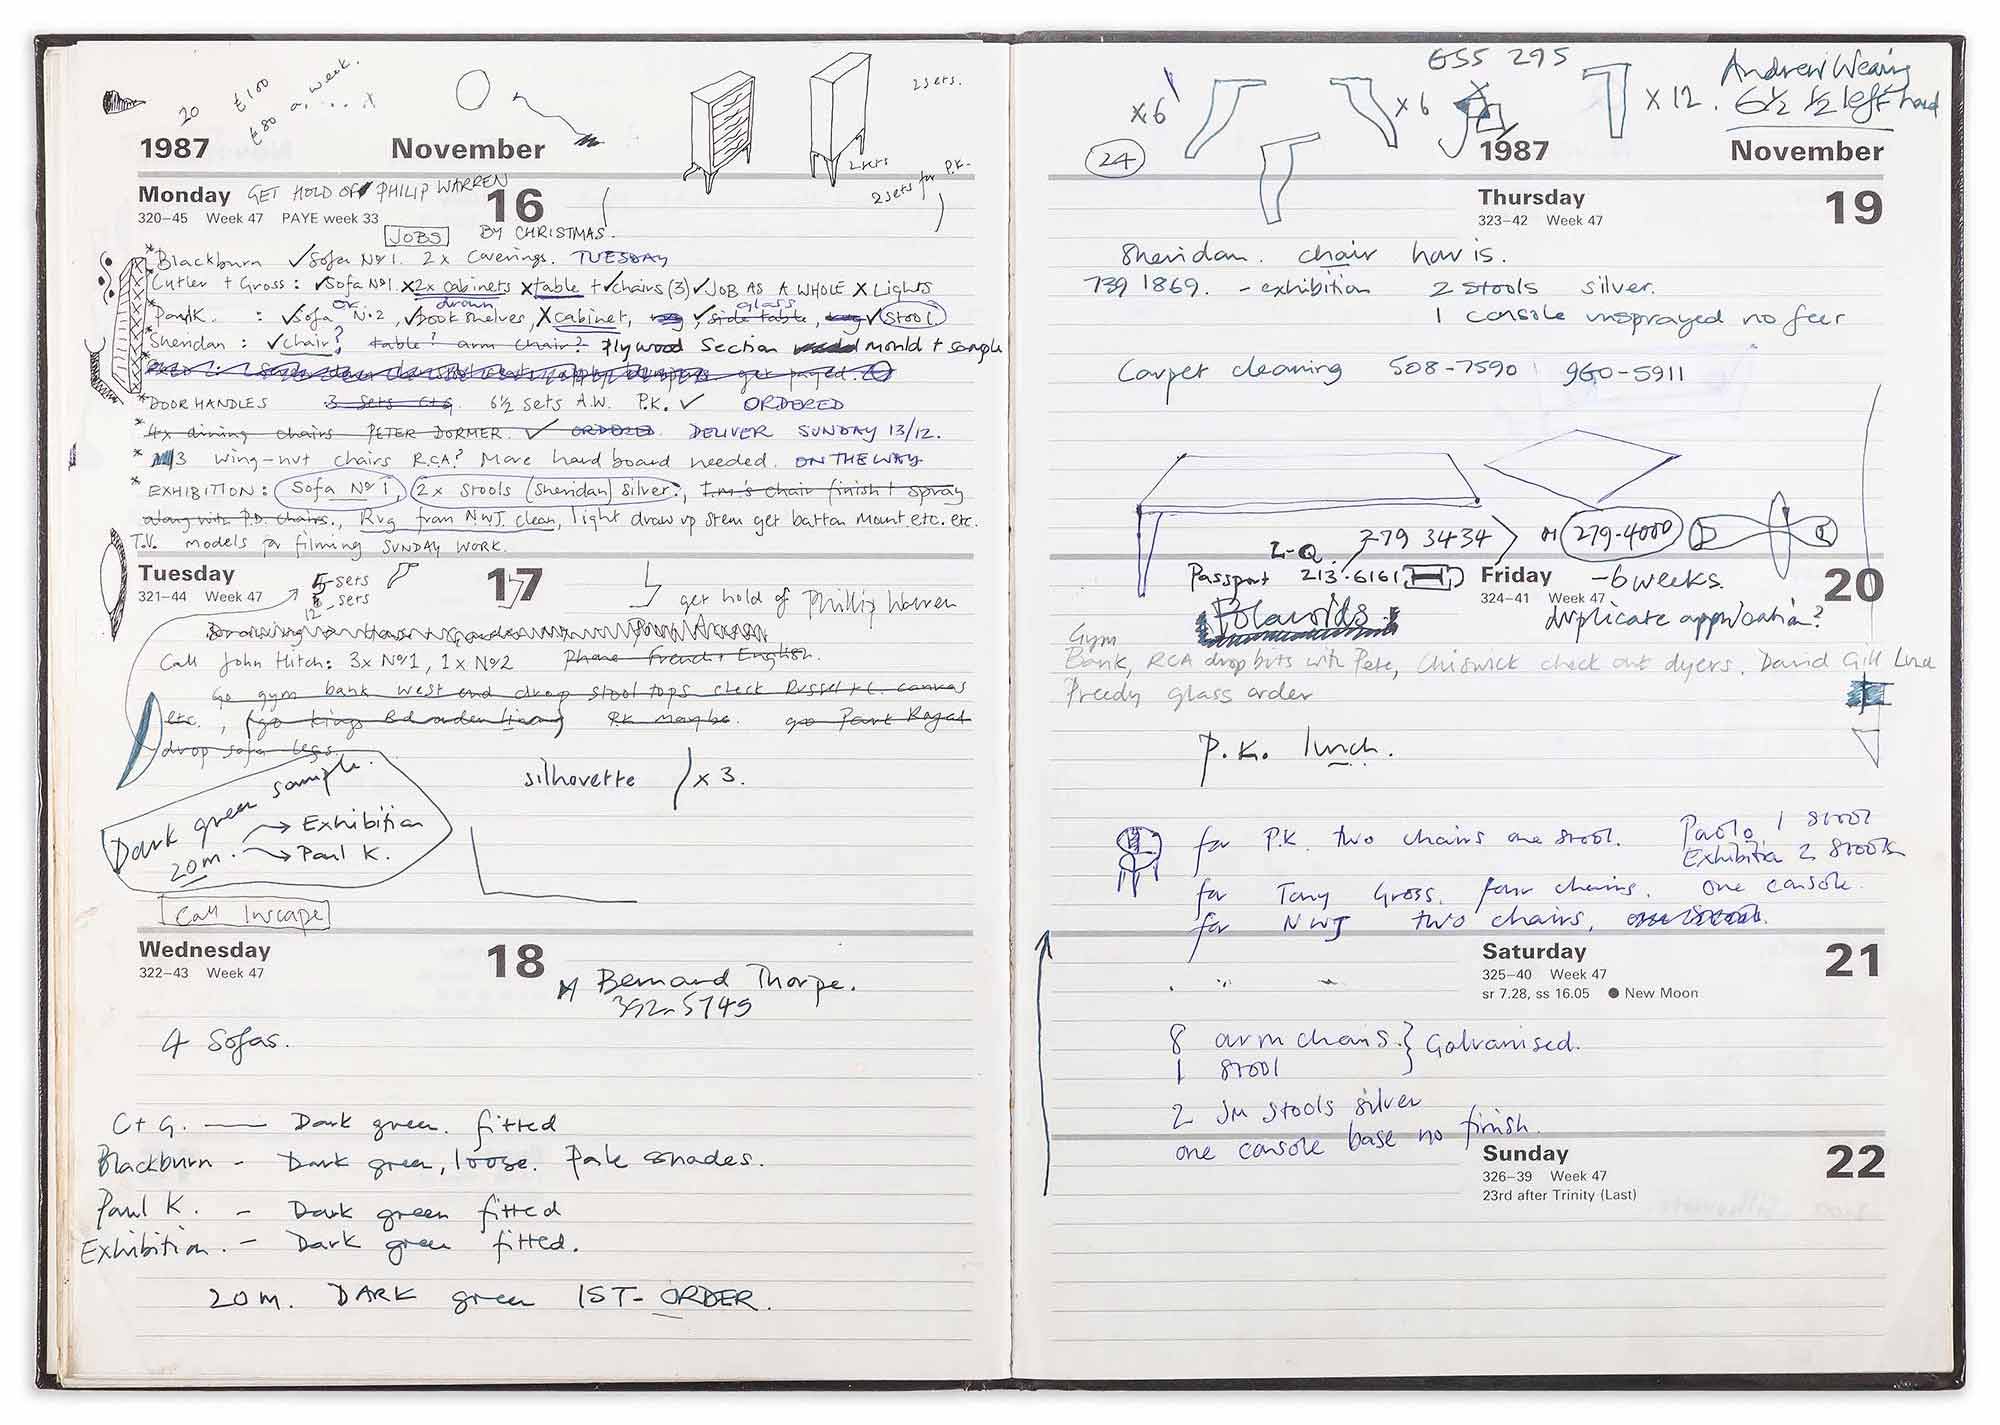 20 £100
£80 a week.
2 sets.
1987 November
2 sets
2 sets for P.K.
Monday GET HOLD OF PHILIP WARREN 16
320–45 Week 47 PAYE week 33
JOBS BY CHRISTMAS.
* Blackburn ✓Sofa Nº1. 2 x Coverings. TUESDAY
* Cutler + Gross : ✓Sofa Nº1. X 2x cabinets X table + ✓chairs (3) ✓JOB AS A WHOLE X LIGHTS
or drawn glass
* Paul K. : ✓Sofa Nº2, ✓book shelves, X cabinet, ✓side table, ✓Stool
* Sheridan : ✓chair? table? arm chair? Plywood Section mould + sample
get payed.
* DOOR HANDLES 3 sets C+G. 6½ sets A.W. P.K. ✓ ORDERED
* 4x dining chairs PETER DORMER. ✓ ORDERED. DELIVER SUNDAY 13/12.
* 3 wing-nut chairs R.C.A? More hard board needed. ON THE WAY
* EXHIBITION: Sofa Nº1, 2x Stools (Sheridan) silver, J.M's chair finish + spray
along with P.D. chairs., Rug from NWJ. clean, light draw up stem get button mount etc. etc.
T.V. models for filming SUNDAY WORK.
Tuesday 17
321–44 Week 47
5 sets
sets
12
get hold of Phillip Warren
Call John Hitch: 3x Nº1, 1x Nº2 Phone French + English.
Go gym bank west end drop stool tops check Russel + C. canvas
etc., (go Kings Rd order lining) P.K maybe. go Park Royal
drop sofa legs.
silhouette x 3.
Dark green sample.
20m. → Exhibition
→ Paul K.
Call Inscape
Wednesday 18
322–43 Week 47
Bernard Thorpe.
352-5749
4 Sofas.
C+G. — Dark green. fitted
Blackburn – Dark green, loose. Pale shades.
Paul K. – Dark green fitted
Exhibition. – Dark green fitted.
20m. DARK green 1ST- ORDER.
655 295
x6 x6 x12.
Andrew Wearing
6½ ½ left hand
24
1987 November
Thursday 19
323–42 Week 47
Sheridan. chair how is.
739 1869. – exhibition 2 stools silver.
1 console unsprayed no feer
Carpet cleaning 508-7590 960-5911
279 3434 279-4000
Passport 213.6161
Friday 20
324–41 Week 47
– 6 weeks.
duplicate application?
Polaroids.
Gym
Bank, RCA drop bits with Pete, Chiswick check out dyers. David Gill
Preedy glass order
P.K. lunch.
for P.K. two chairs one stool. Paolo 1 stool
Exhibition 2 stools
for Tony Gross. four chairs. one console.
for NWJ two chairs, one stool.
Saturday 21
325–40 Week 47
sr 7.28, ss 16.05 ● New Moon
8 arm chairs. } Galvanised.
1 stool
2 JM Stools silver
one console base no finish.
Sunday 22
326–39 Week 47
23rd after Trinity (Last)